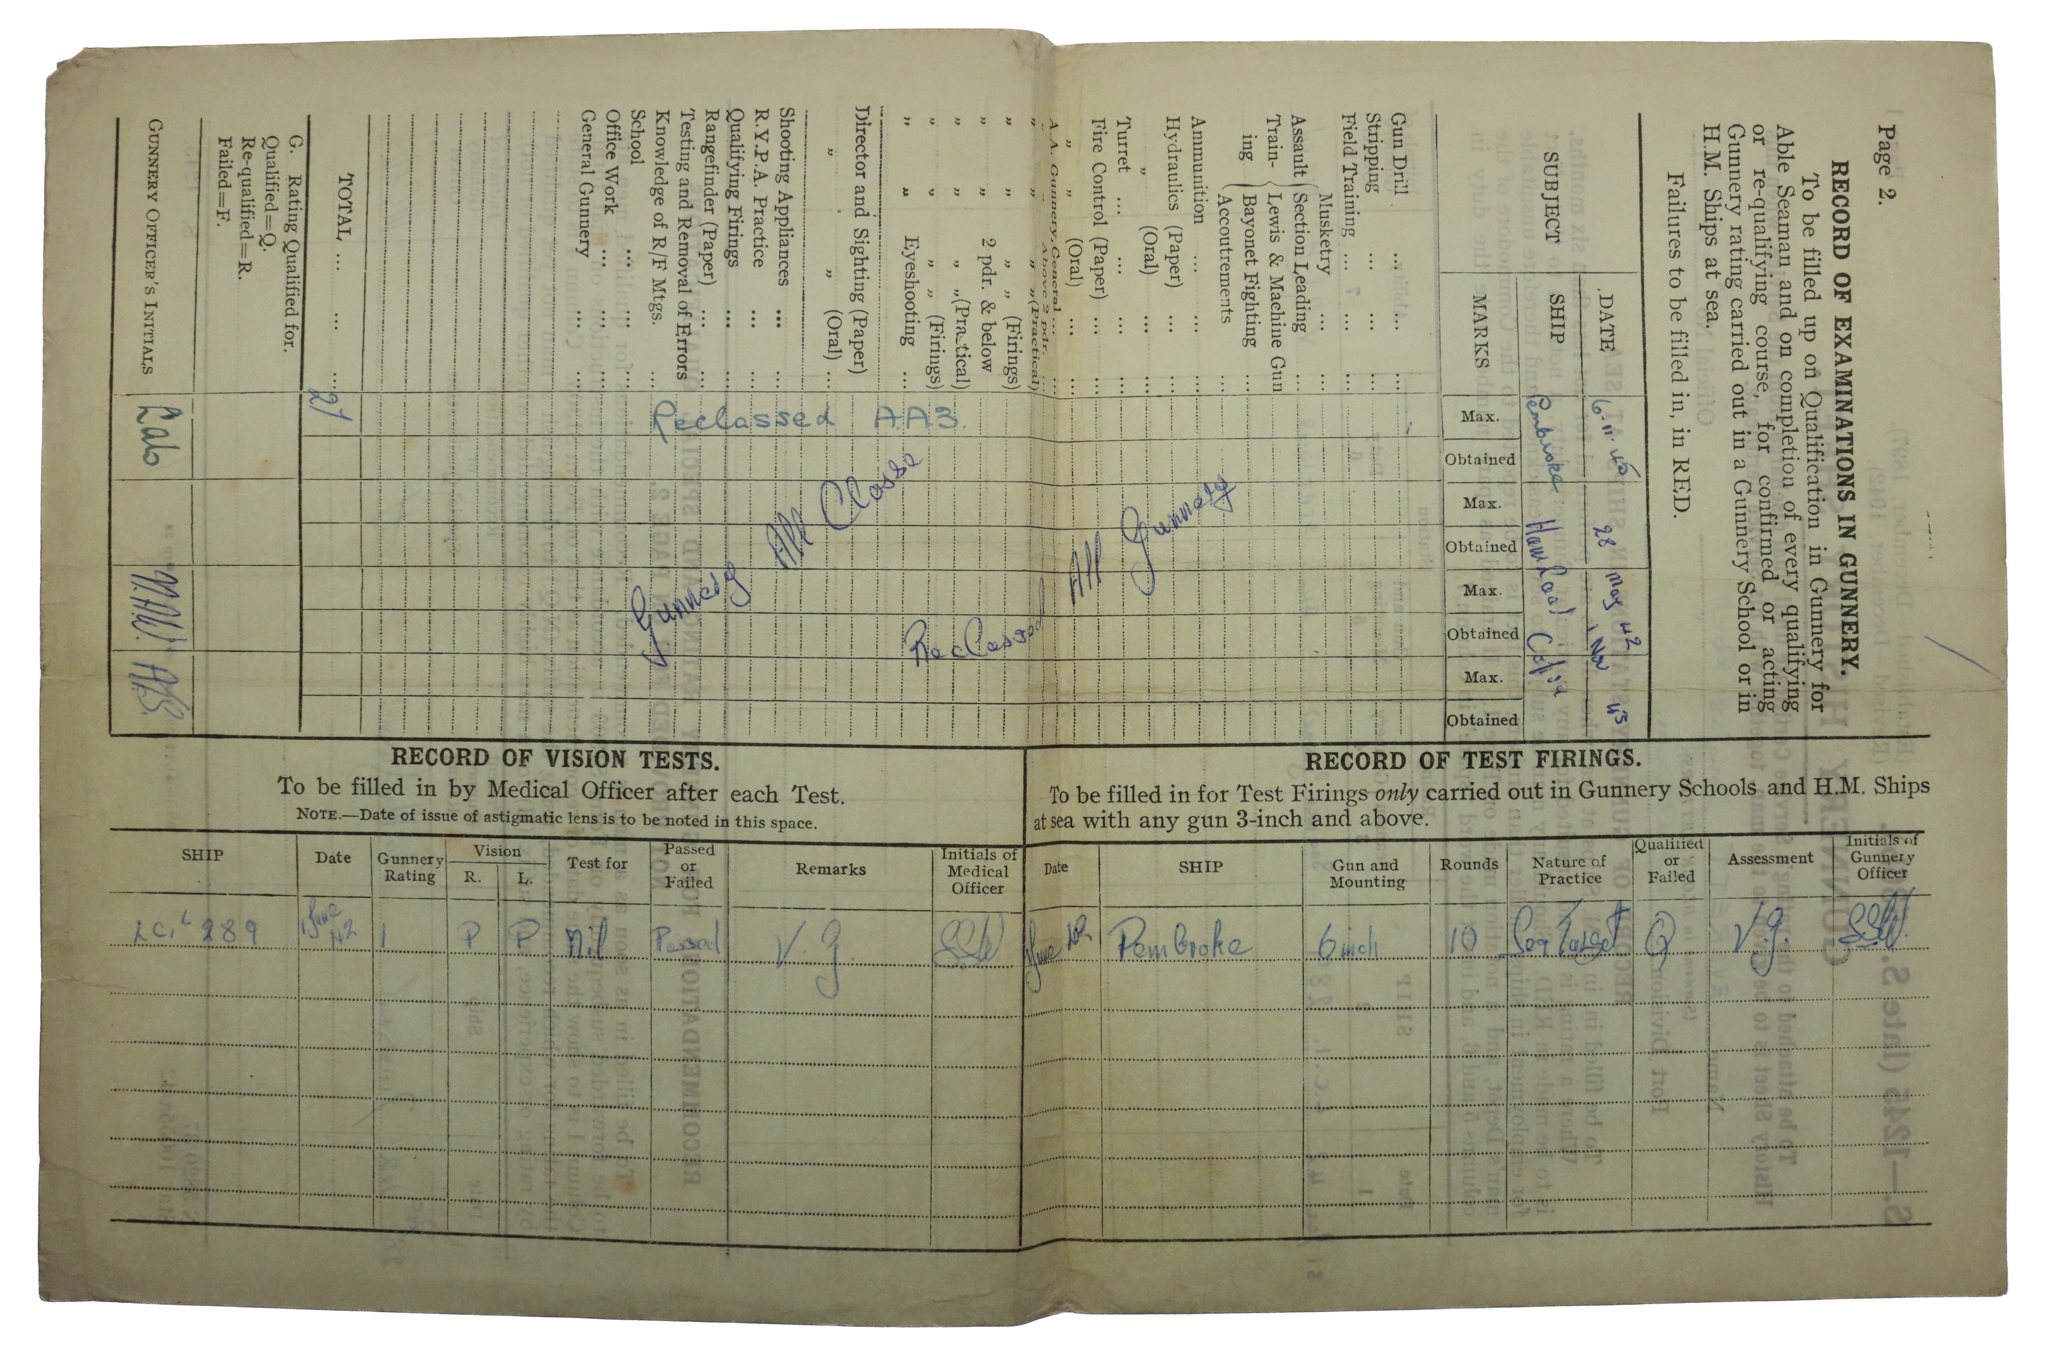 Page 2.
RECORD OF EXAMINATIONS IN GUNNERY.
To be filled up on Qualification in Gunnery for
Able Seaman and on completion of every qualifying
or re-qualifying course, for confirmed or acting
Gunnery rating carried out in a Gunnery School or in
H.M. Ships at sea.
Failures to be filled in, in RED.
DATE 6.11.40 28 May 42 1 Nov 43
SUBJECT SHIP Pembroke
MARKS Max. Obtained Max. Obtained Max. Obtained Max. Obtained
Gun Drill ... ...
Stripping ... ...
Field Training ... ...
Musketry ...
Assault { Section Leading ...
Train- { Lewis & Machine Gun
ing { Bayonet Fighting ...
Accoutrements ...
Ammunition ... ...
Hydraulics (Paper) ...
„ (Oral) ...
Turret ... ... ...
Fire Control (Paper) ...
„ „ (Oral) ...
A.A. Gunnery, General ...
„ „ Above 2 pdr. ...
„ „ „ (Practical)
„ „ „ (Firings)
„ „ 2 pdr. & below
„ „ „ (Practical)
„ „ „ (Firings)
„ „ Eyeshooting ...
Director and Sighting (Paper)
„ „ (Oral) ...
Shooting Appliances ...
R.Y.P.A. Practice ...
Qualifying Firings ...
Rangefinder (Paper) ...
Testing and Removal of Errors
Knowledge of R/F Mtgs. ...
School ... ...
Office Work ... ...
General Gunnery ... ...
Reclassed AA3.
Gunnery
Reclassed
Gunnery
TOTAL ... ... ...
G. Rating Qualified for.
Qualified=Q.
Re-qualified=R.
Failed=F.
GUNNERY OFFICER'S INITIALS
RECORD OF VISION TESTS.
To be filled in by Medical Officer after each Test.
NOTE.—Date of issue of astigmatic lens is to be noted in this space.
SHIP Date Gunnery Rating Vision R. L. Test for Passed or Failed Remarks Initials of Medical Officer
289 June 42 1 P P Nil Passed V.G.
RECORD OF TEST FIRINGS.
To be filled in for Test Firings only carried out in Gunnery Schools and H.M. Ships
at sea with any gun 3-inch and above.
Date SHIP Gun and Mounting Rounds Nature of Practice Qualified or Failed Assessment Initials of Gunnery Officer
June 42 Pembroke 6 inch 10 Sea Target Q V.G.